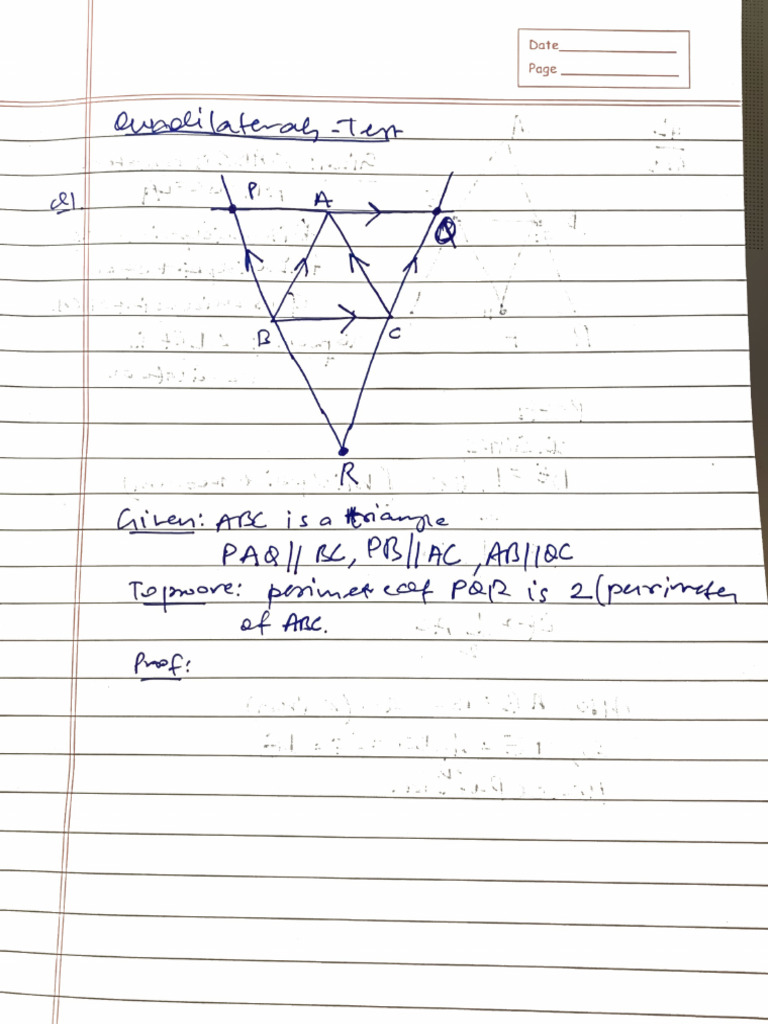 Date
Page
Quadilaterals - Test
Q1
P
A
Q
B
C
R
Given: ABC is a triangle
PAQ || BC, PB || AC, AB || QC
To prove: perimeter of PQR is 2(perimeter
of ABC.
Proof: